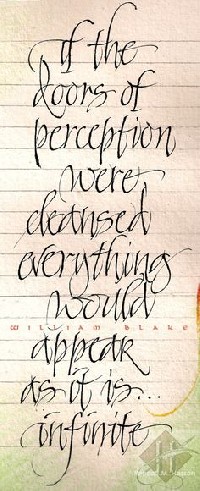 if the
doors of
perception
were
cleansed
everything
would
WILLIAM BLAKE
appear
as it is...
infinite